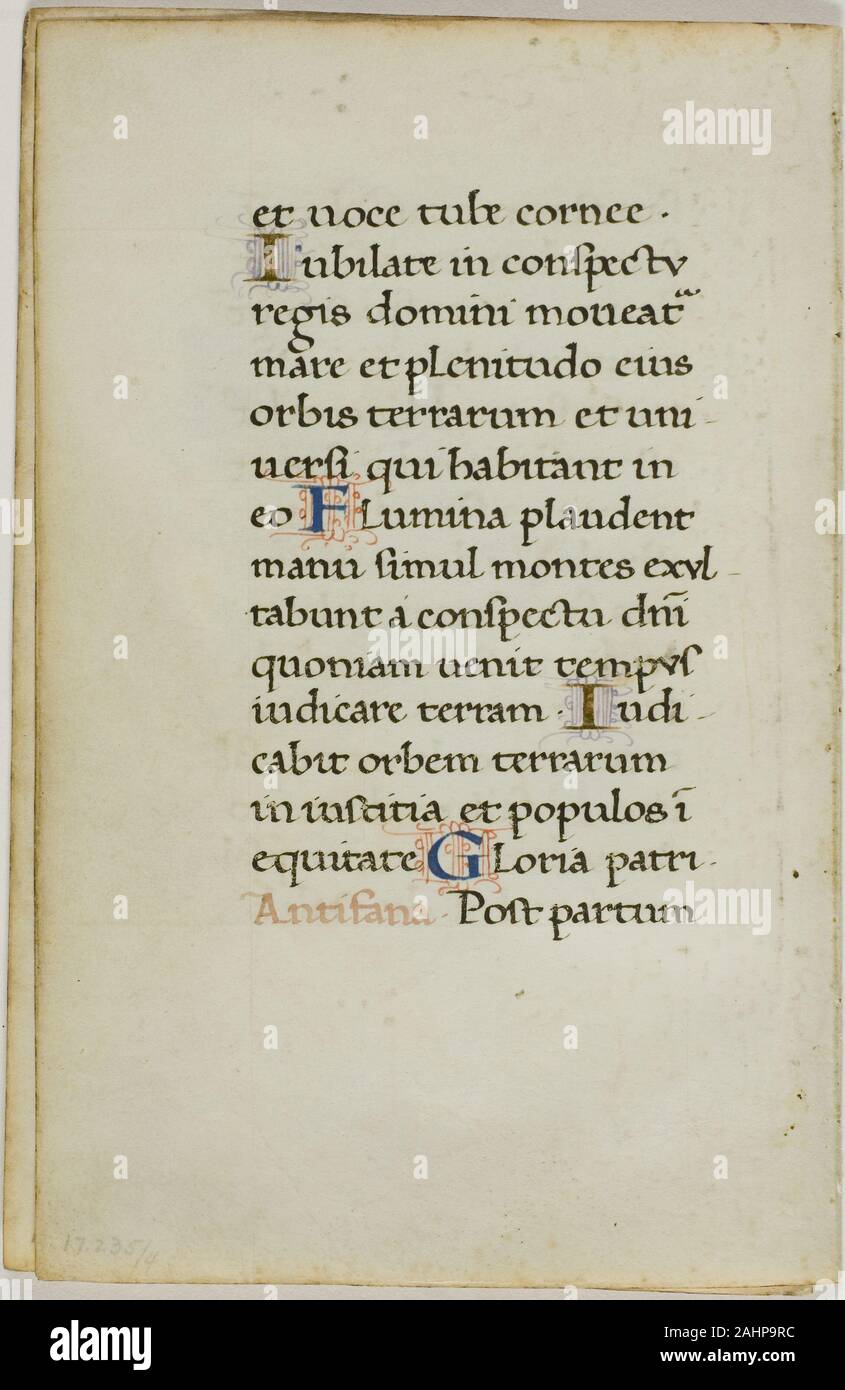 et uoce tube cornee ·
Iubilate in conspectu
regis domini moueat
mare et plenitudo eius
orbis terrarum et uni-
uersi qui habitant in
eo Flumina plaudent
manu simul montes exul-
tabunt a conspectu dñi
quoniam uenit tempus
iudicare terram · Iudi-
cabit orbem terrarum
in iustitia et populos ī
equitate Gloria patri ·
Antifana · Post partum
17.235/4
alamy
Image ID: 2AHP9RC
www.alamy.com